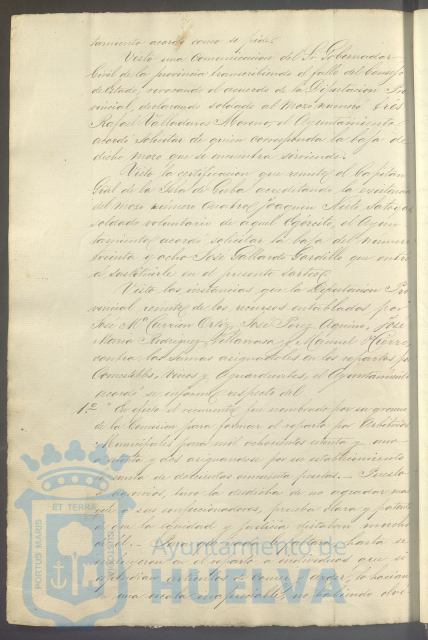 tamiento acordó como se pide.
Vista una Comunicacion del Sr. Gobernador
Civil de la provincia transcribiendo el fallo del Consejo
de Estado, revocando el acuerdo de la Diputacion Pro
vincial, declarando soldado al Mozo número tres
Rafael Valladares Moreno, el Ayuntamiento
acordó solicitar de quien corresponda la baja de
dicho mozo que se encuentra sirviendo.
Vista la certificacion que remite el Capitan
Gral de la Isla de Cuba acreditando la existencia
del Mozo número Cuatro, Joaquin
soldado voluntario de aquel Egército, el Ayun
tamiento acordó solicitar la baja del número
treinta y ocho José Gallardo Gordillo que entró
á sustituirle en el presente sorteo.
Vistas las instancias que la Diputacion Pro
vincial remite de los recursos entablados por
José Mª Carrion Ortiz, José Perez Aquino, José
Maria Rodriguez Villanasa y Manuel Hierro
contra las sumas asignadas en los repartos por
Comestibles, Vinos y Aguardientes, el Ayuntamiento
acordó se informe respecto del
1.º En efecto el recurrente fué nombrado por su gremio
de la Comision para formar el reparto por Arbitrios
Municipales para mil ochocientos ochenta y uno
ochenta y dos asignandose por su establecimiento
suma de doscientas cincuenta pesetas.
tuvo la desdicha de no agradar
á sus confeccionadores, prueba clara y patente
que la equidad y justicia dictaban
hasta se
en el reparto á individuos que
artículos de comer y arder, lo hacian
en una escala no habiendo
PORTUS MARIS
ET TERRAE CUSTODIA
Ayuntamiento de
HUELVA